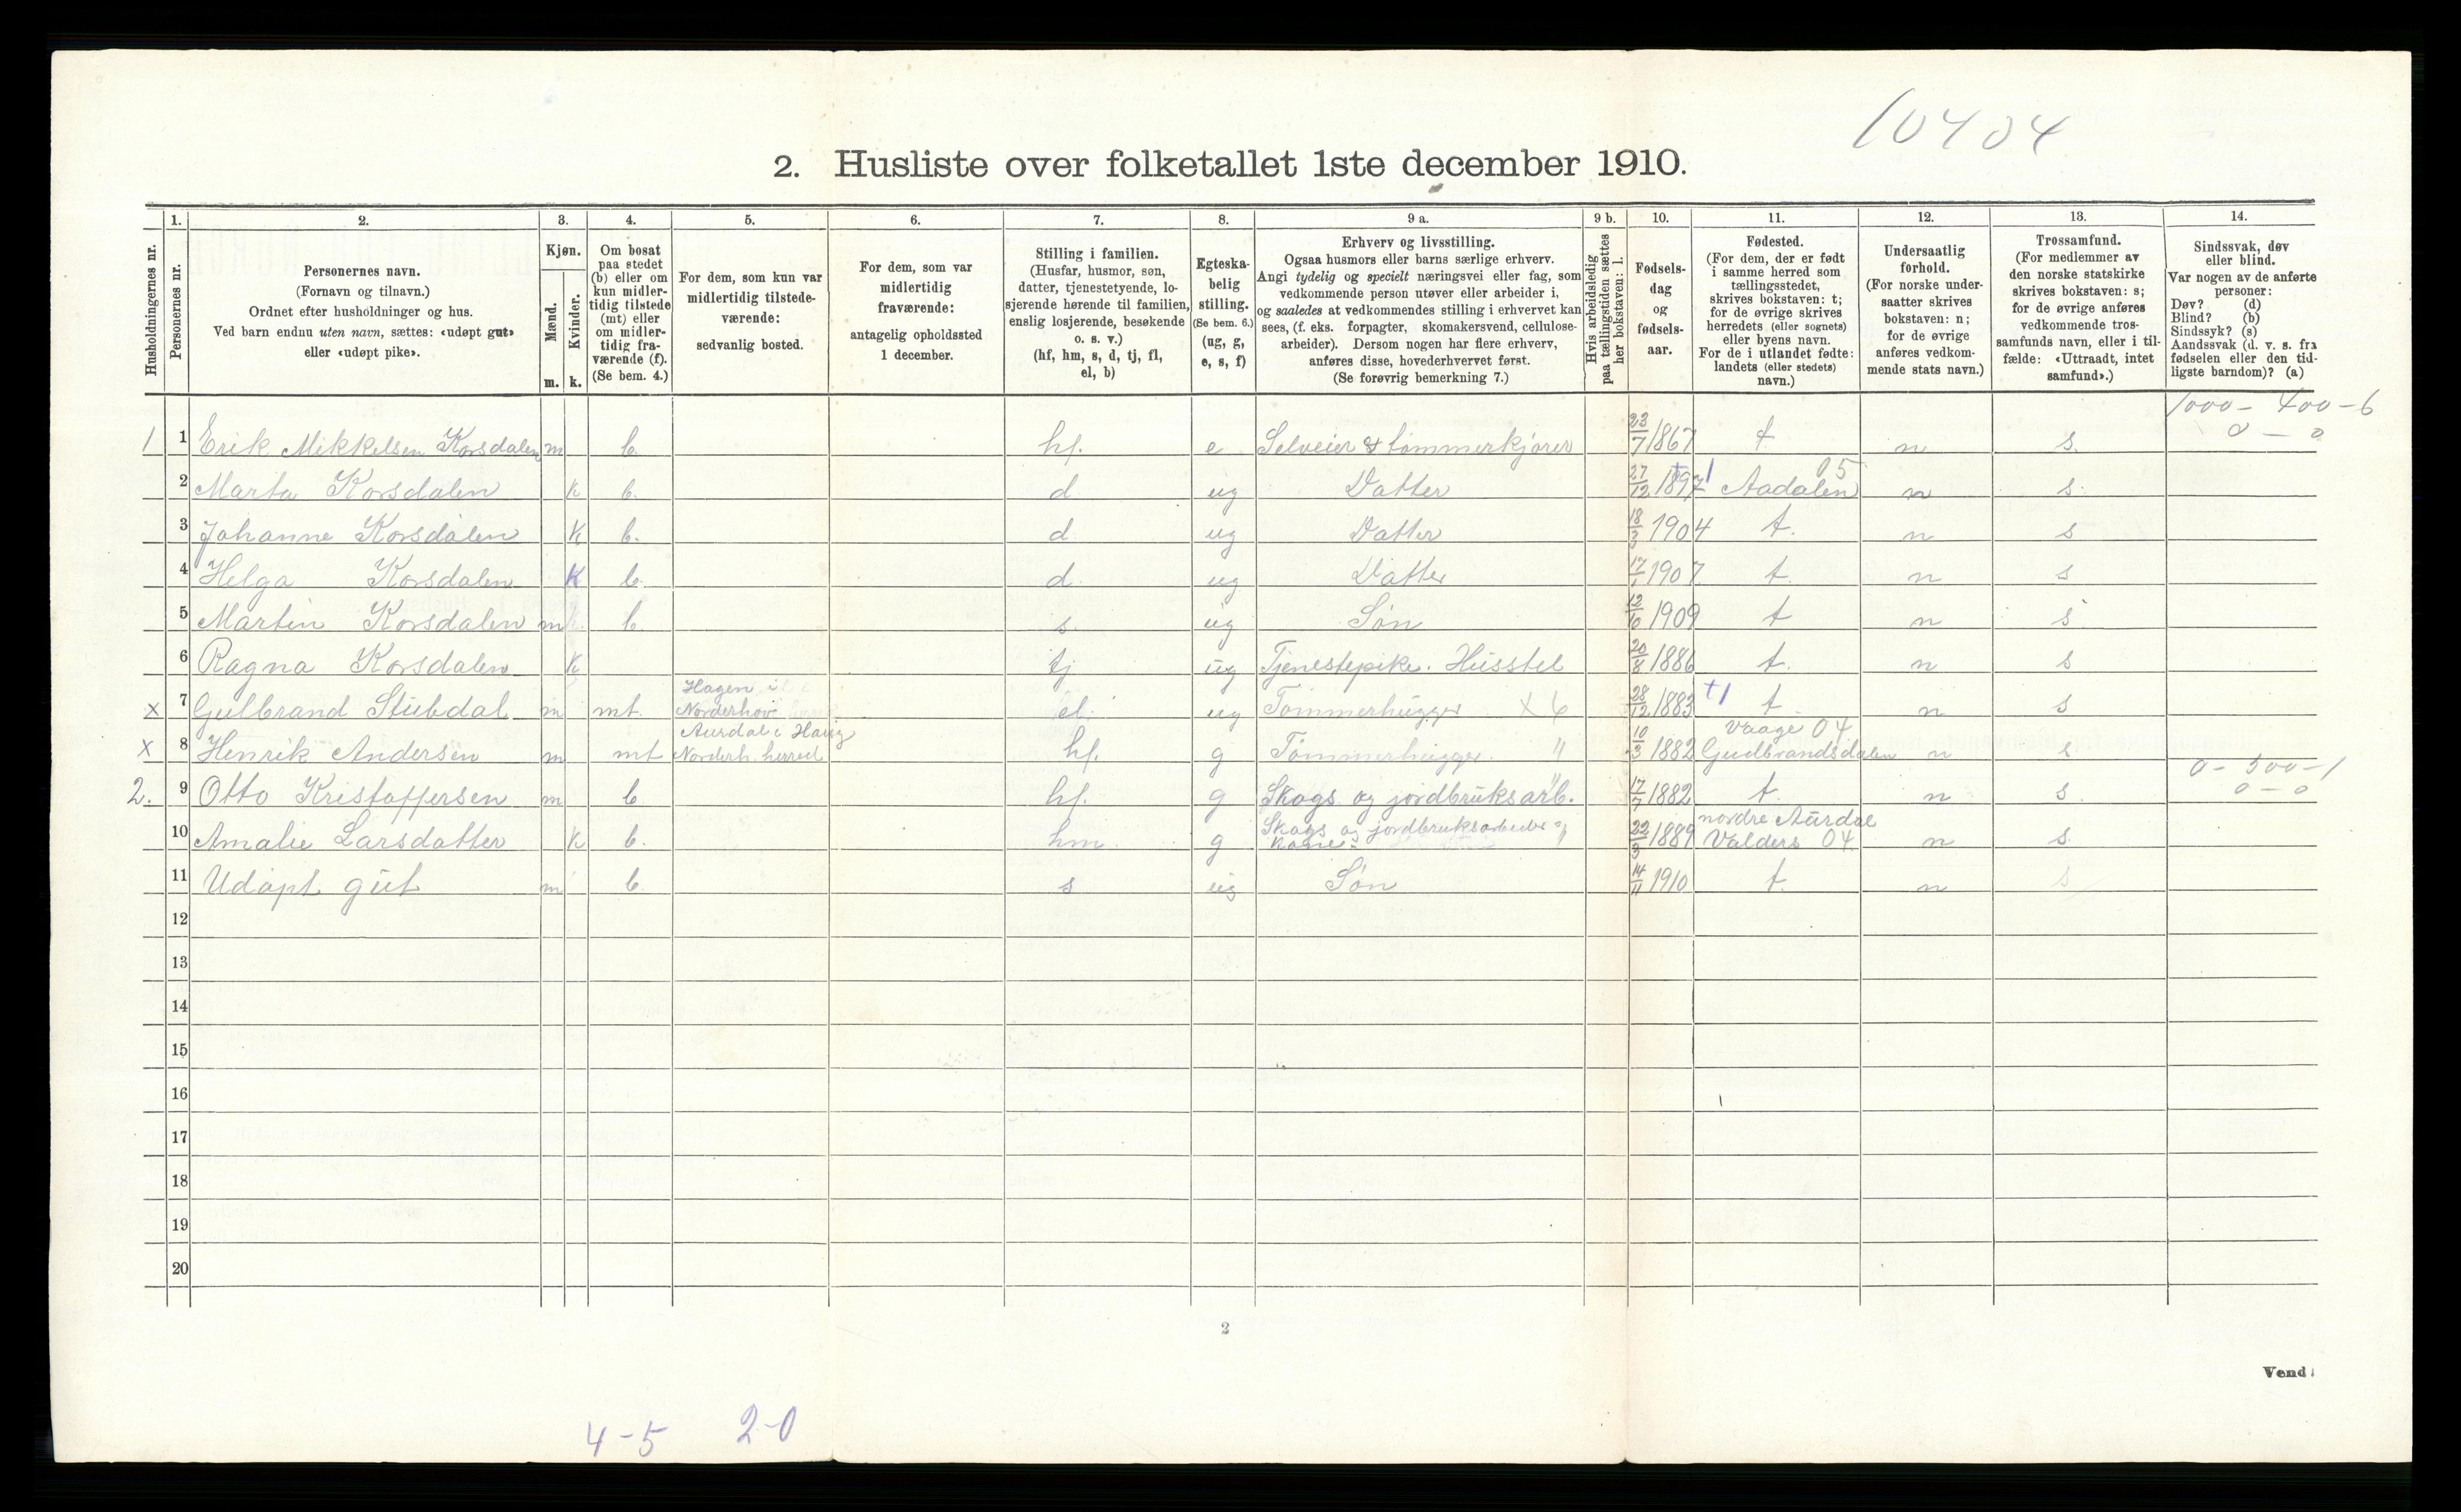 10404
2. Husliste over folketallet 1ste december 1910.
Husholdningernes nr.
1. Personernes nr.
2. Personernes navn. (Fornavn og tilnavn.) Ordnet efter husholdninger og hus. Ved barn endnu uten navn, sættes: «udøpt gut» eller «udøpt pike».
3. Kjøn. Mænd. m. Kvinder. k.
4. Om bosat paa stedet (b) eller om kun midler-tidig tilstede (mt) eller om midler-tidig fra-værende (f). (Se bem. 4.)
5. For dem, som kun var midlertidig tilstede-værende: sedvanlig bosted.
6. For dem, som var midlertidig fraværende: antagelig opholdssted 1 december.
7. Stilling i familien. (Husfar, husmor, søn, datter, tjenestetyende, lo-sjerende hørende til familien, enslig losjerende, besøkende o. s. v.) (hf, hm, s, d, tj, fl, el, b)
8. Egteska-belig stilling. (Se bem. 6.) (ug, g, e, s, f)
9 a. Erhverv og livsstilling. Ogsaa husmors eller barns særlige erhverv. Angi tydelig og specielt næringsvei eller fag, som vedkommende person utøver eller arbeider i, og saaledes at vedkommendes stilling i erhvervet kan sees, (f. eks. forpagter, skomakersvend, cellulose-arbeider). Dersom nogen har flere erhverv, anføres disse, hovederhvervet først. (Se forøvrig bemerkning 7.)
9 b. Hvis arbeidsledig paa tællingstiden sættes her bokstaven: l.
10. Fødsels-dag og fødsels-aar.
11. Fødested. (For dem, der er født i samme herred som tællingsstedet, skrives bokstaven: t; for de øvrige skrives herredets (eller sognets) eller byens navn. For de i utlandet fødte: landets (eller stedets) navn.)
12. Undersaatlig forhold. (For norske under-saatter skrives bokstaven: n; for de øvrige anføres vedkom-mende stats navn.)
13. Trossamfund. (For medlemmer av den norske statskirke skrives bokstaven: s; for de øvrige anføres vedkommende tros-samfunds navn, eller i til-fælde: «Uttraadt, intet samfund».)
14. Sindssvak, døv eller blind. Var nogen av de anførte personer: Døv? (d) Blind? (b) Sindssyk? (s) Aandssvak (d. v. s. fra fødselen eller den tid-ligste barndom)? (a)
1000 - 400 - 6
1 1 Erik Mikkelsen Korsdalen m b. hf. e Selveier & tømmerkjører 23/7 1867 t n s. 0 - 0
2 Marta Korsdalen k b. d ug Datter 27/12 1897 Aadalen 05 n s.
3 Johanne Korsdalen k b. d ug Datter 18/3 1904 t. n s
4 Helga Korsdalen k b. d. ug Datter 17/1 1907 t. n s
5 Martin Korsdalen m b s. ug Søn 12/6 1909 t n s
6 Ragna Korsdalen k tj ug Tjenestepike. Husstel 20/8 1886 t. n s
x 7 Gulbrand Stubdal m mt. Hagen i Norderhov el. ug Tømmerhugger x 6 28/12 1883 t n s
x 8 Henrik Andersen m mt Aurdal i Haug Norderh. herred hf. g Tømmerhugger. " 10/3 1882 Vaage 04 Gudbrandsdalen n s
0 - 500 - 1
2. 9 Otto Kristoffersen m b hf. g Skogs og jordbruksarb. 17/7 1882 t. n s. 0 - 0
10 Amalie Larsdatter k b. hm. g Skogs og jordbruksarbeider kone 22/3 1889 nordre Aurdal Valders 04 n s.
11 Udøpt gut m b s ug Søn 14/11 1910 t. n s
12
13
14
15
16
17
18
19
20
2
Vend
4-5 2-0